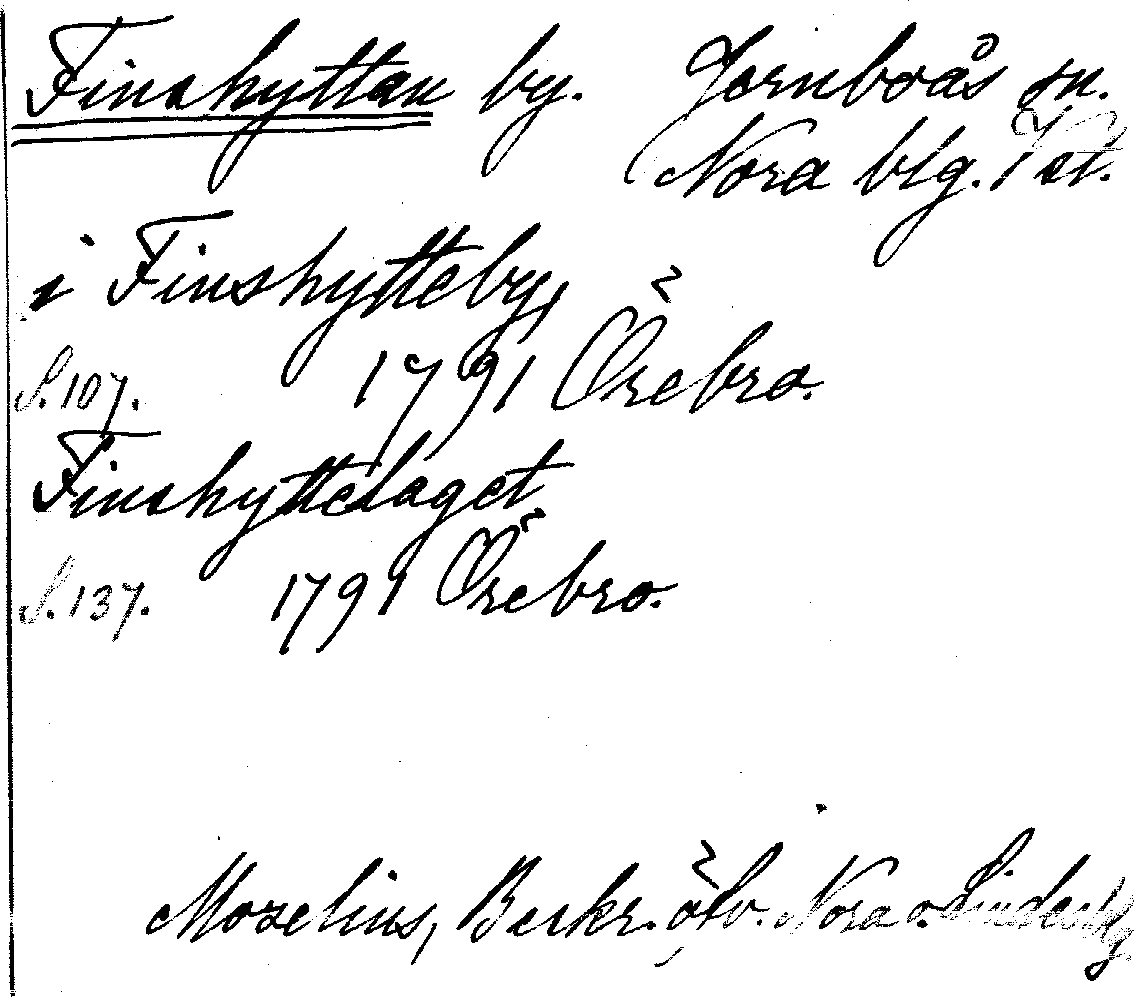 Finshyttan by. Jernboås sn.
Nora blg. Vst.
i Finshytteby,
S. 107. 1791 Örebro.
Finshyttelaget
S. 137. 1791 Örebro.
Mozelius, Beskr. öfv. Nora o. Lindesbg.